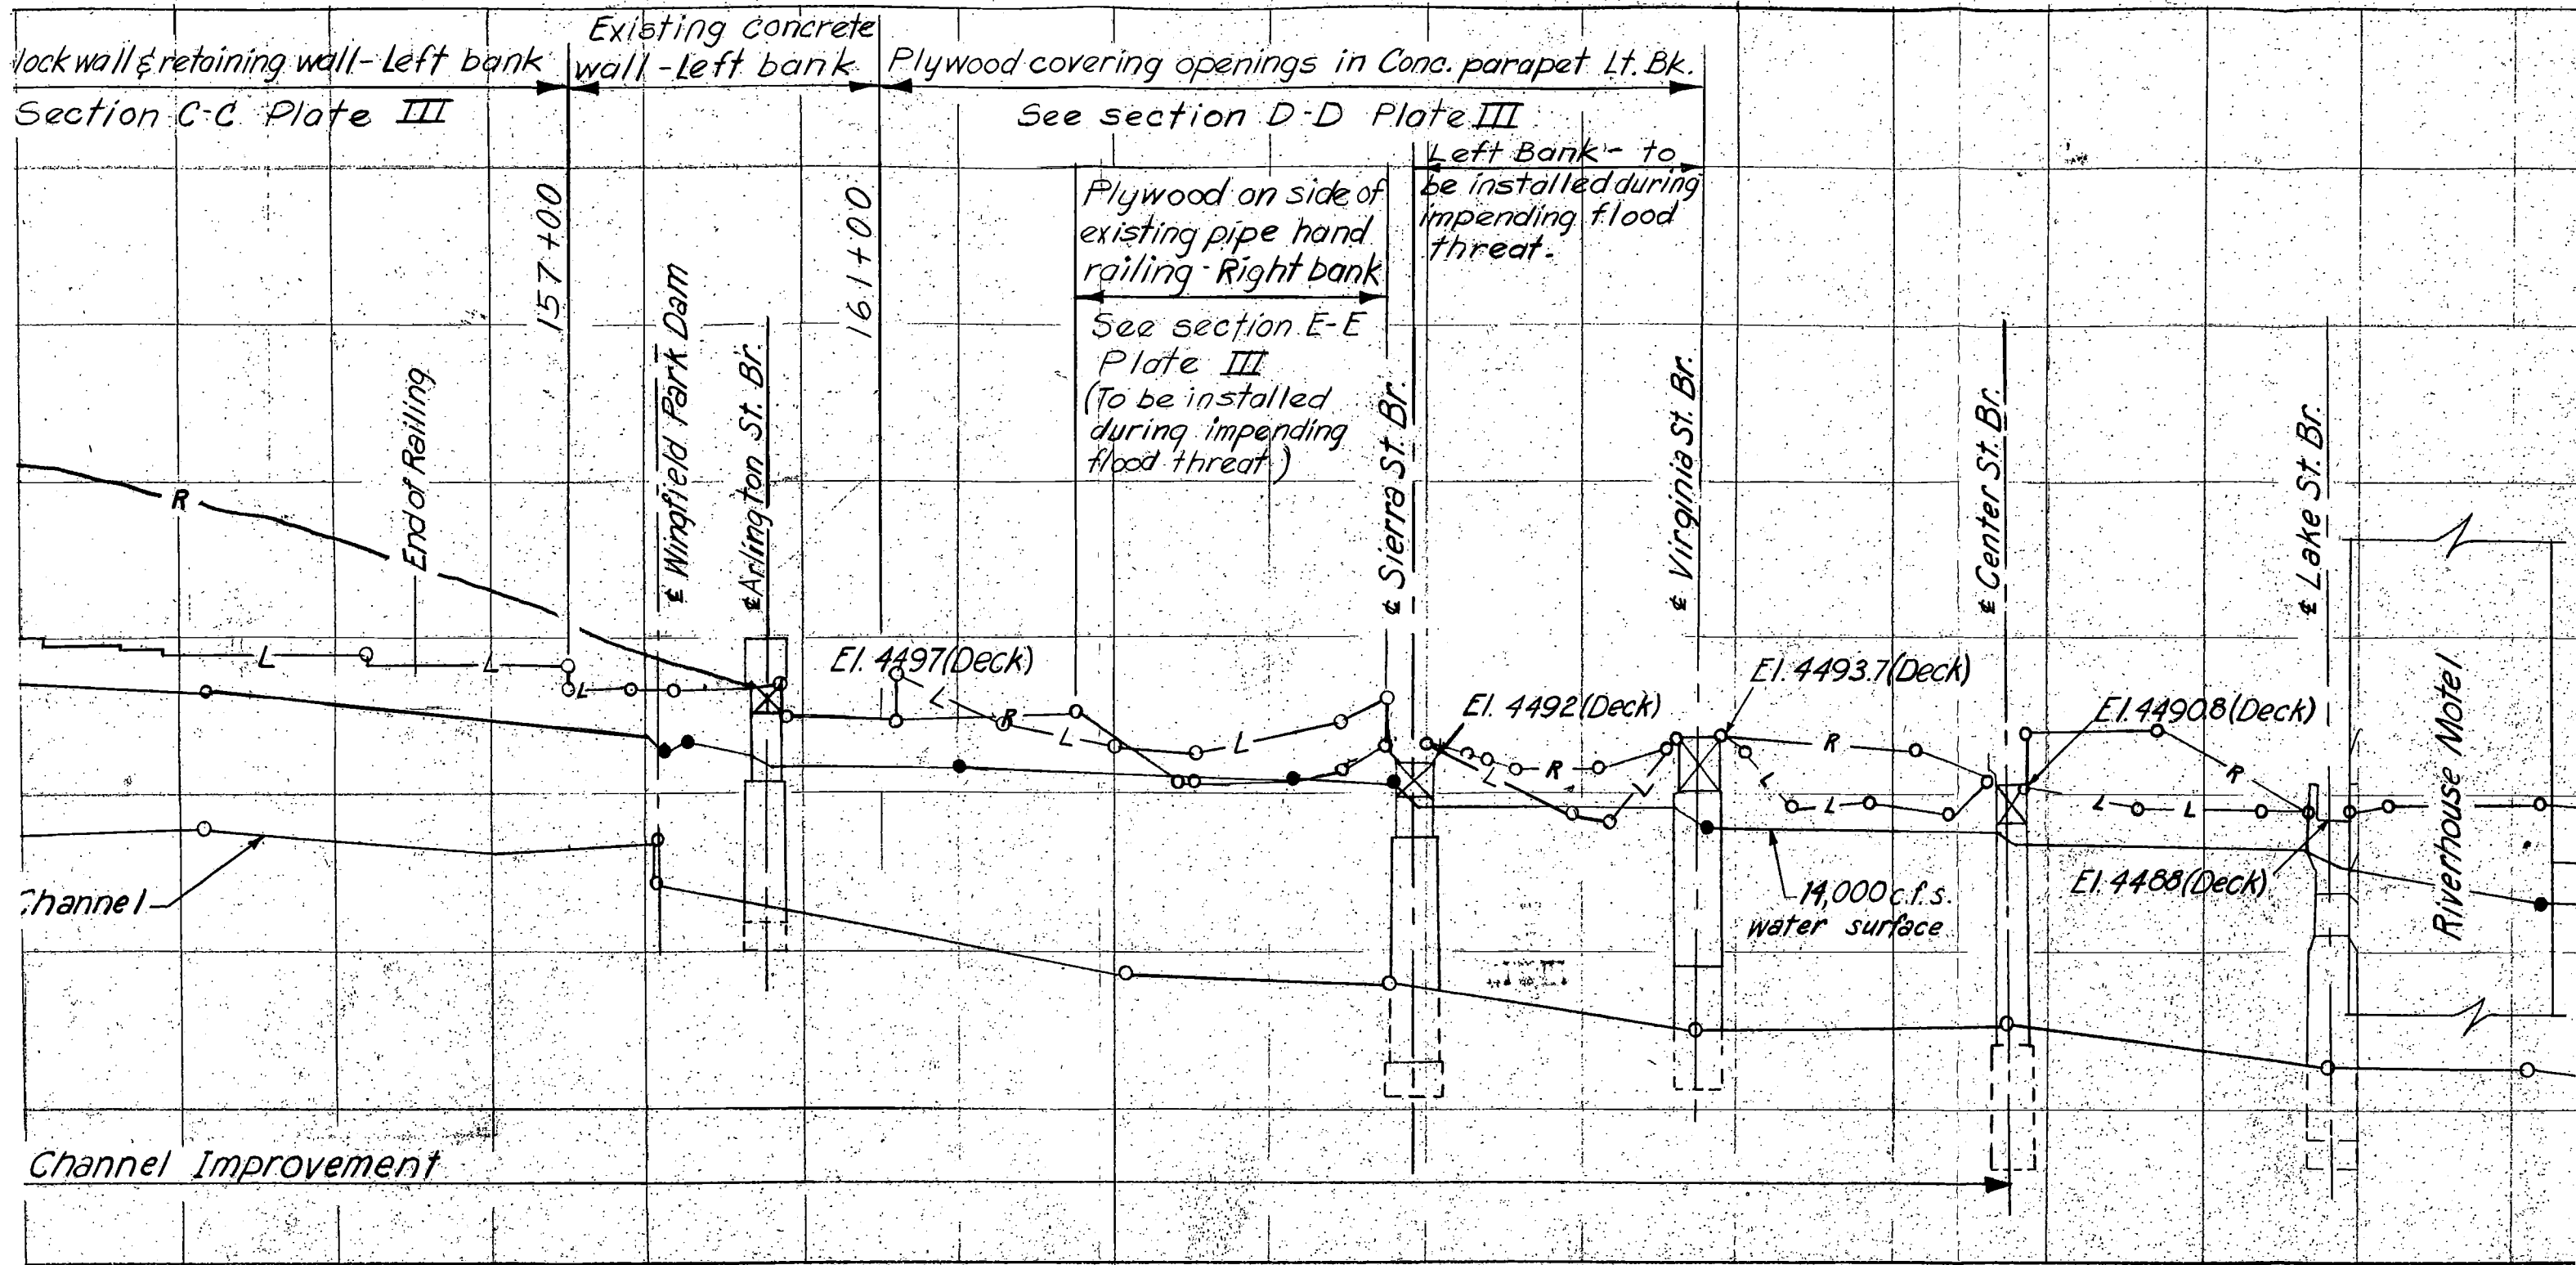 lock wall & retaining wall - Left bank
Section C-C Plate III
Existing concrete
wall - Left bank
Plywood covering openings in Conc. parapet Lt. Bk.
See section D-D Plate III
Left Bank - to
be installed during
impending flood
threat.
Plywood on side of
existing pipe hand
railing - Right bank
See section E-E
Plate III
(To be installed
during impending
flood threat)
157+00
161+00
End of Railing
℄ Wingfield Park Dam
℄ Arlington St. Br.
℄ Sierra St. Br.
℄ Virginia St. Br.
℄ Center St. Br.
℄ Lake St. Br.
Riverhouse Motel
R
L
L
L
El. 4497 (Deck)
L
R
L
L
El. 4492 (Deck)
R
L
L
El. 4493.7 (Deck)
R
L
L
El. 4490.8 (Deck)
R
L
L
El. 4488 (Deck)
14,000 c.f.s.
water surface
Channel
Channel Improvement